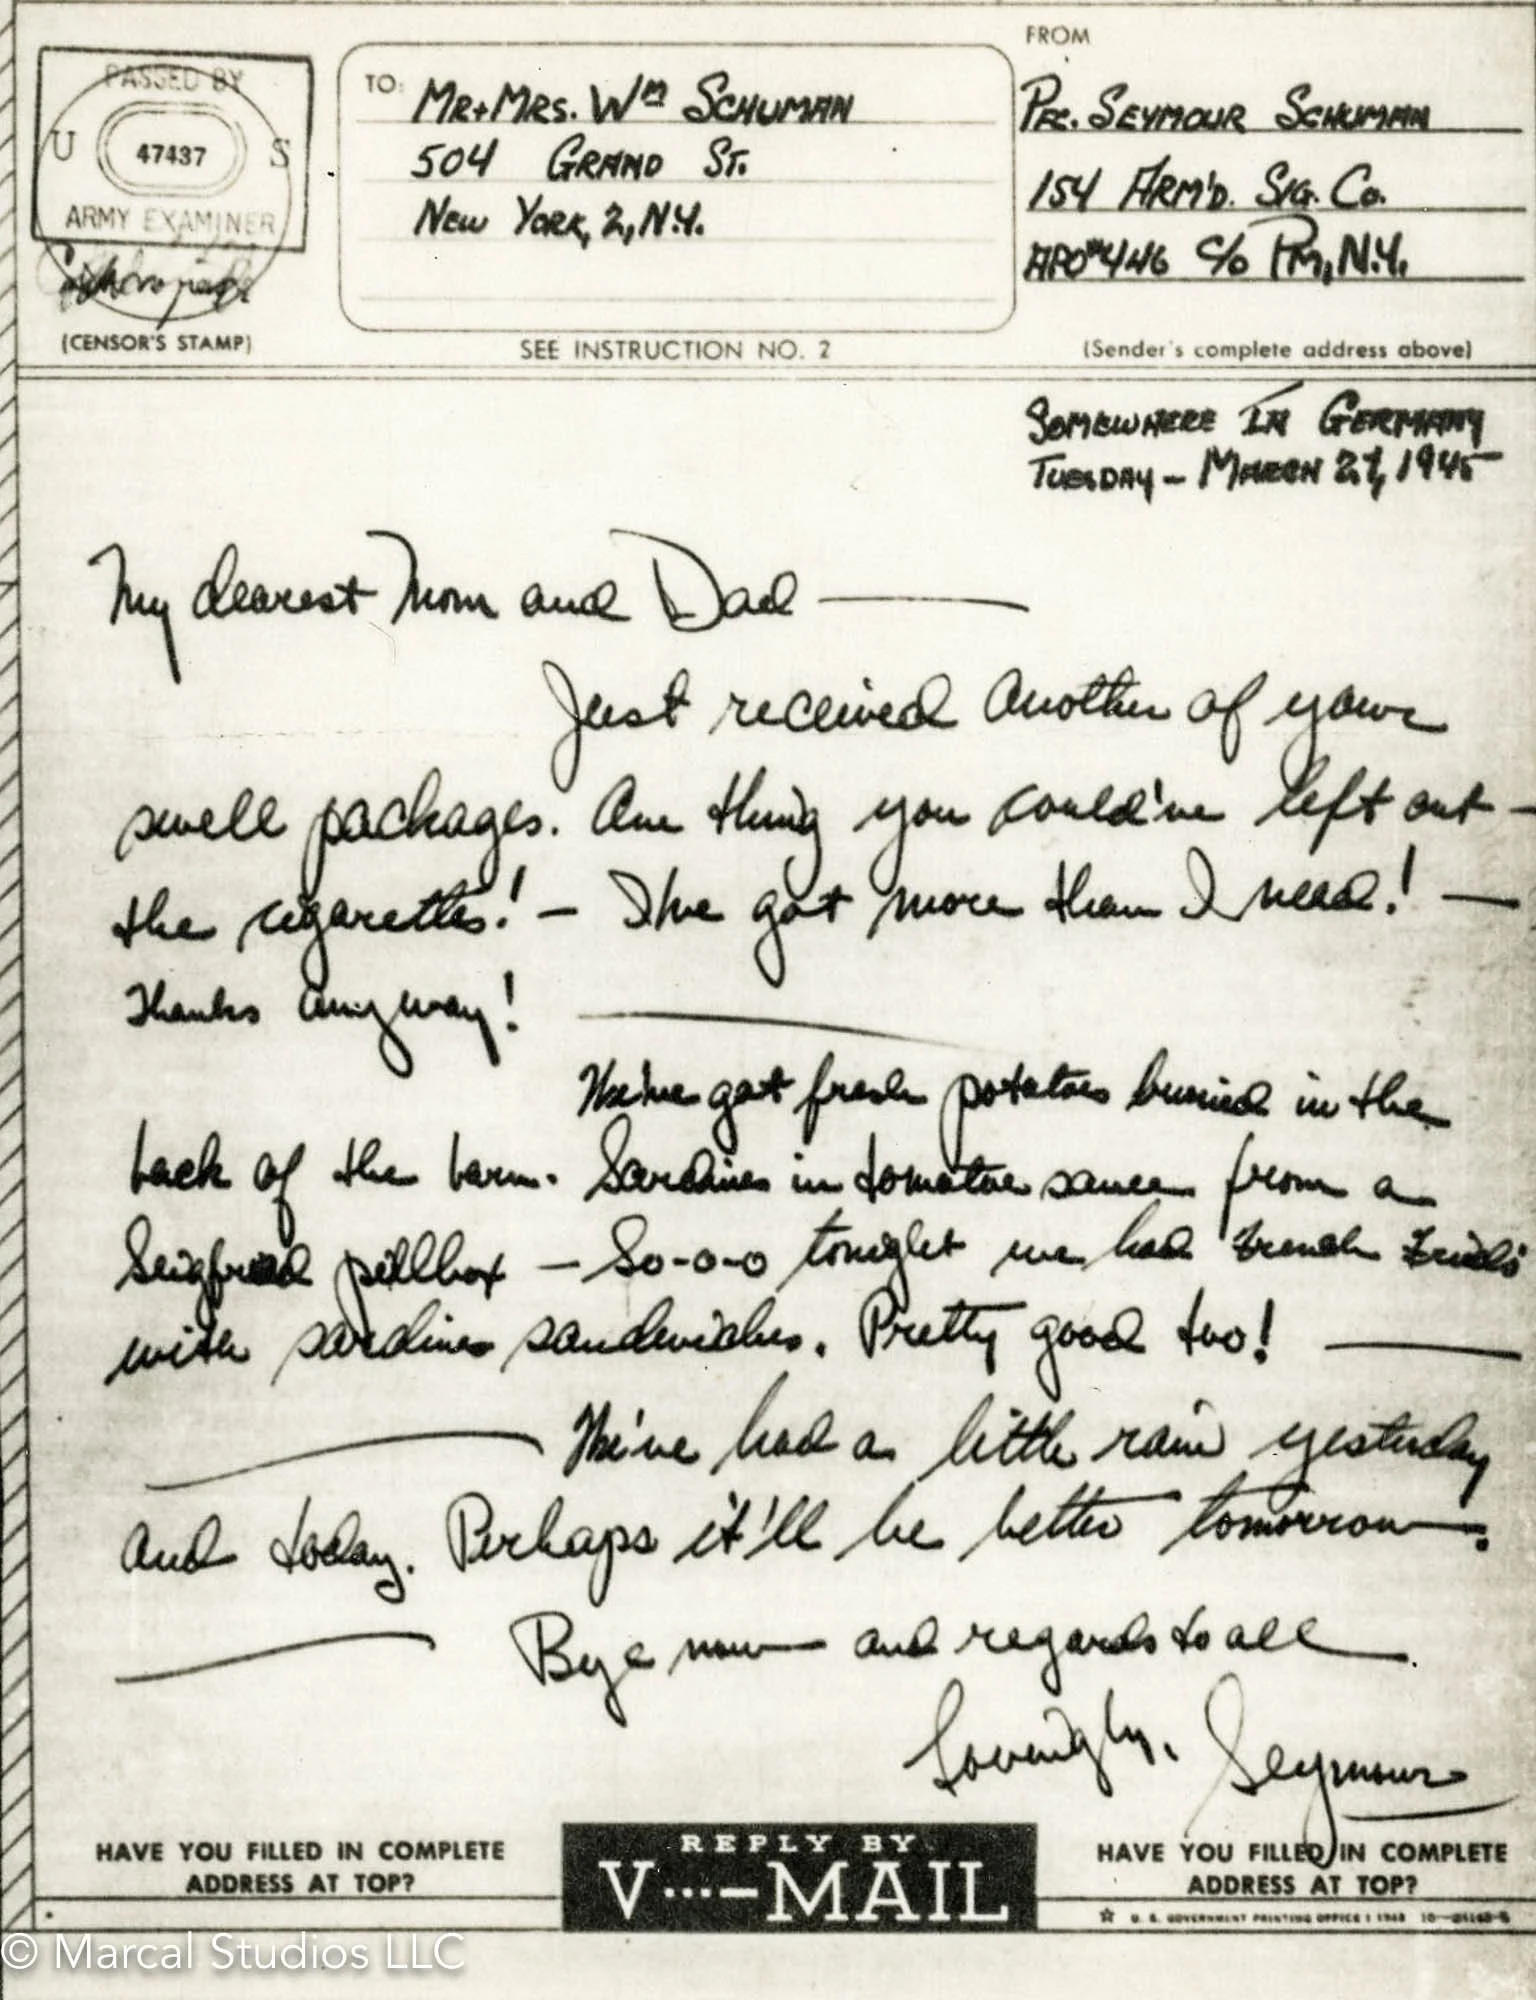 PASSED BY
U S
47437
ARMY EXAMINER
(CENSOR'S STAMP)
TO:
MR + MRS. WM SCHUMAN
504 GRAND ST.
NEW YORK, 2, N.Y.
SEE INSTRUCTION NO. 2
FROM
PFC. SEYMOUR SCHUMAN
154 ARM'D. SIG. CO.
APO #446 C/O PM, N.Y.
(Sender's complete address above)
SOMEWHERE IN GERMANY
TUESDAY – MARCH 27, 1945
My dearest Mom and Dad —
Just received another of your
swell packages. One thing you could've left out –
the cigarettes! – I've got more than I need! —
Thanks anyway! —
We've got fresh potatoes buried in the
back of the barn. Sardines in tomatoe sauce from a
Seigfried pillbox – So-o-o tonight we had french frieds
with sardines sandwiches. Pretty good too! —
— We've had a little rain yesterday
and today. Perhaps it'll be better tomorrow.
— Bye now and regards to all.
Lovingly,
Seymour
HAVE YOU FILLED IN COMPLETE
ADDRESS AT TOP?
REPLY BY
V···—MAIL
HAVE YOU FILLED IN COMPLETE
ADDRESS AT TOP?
☆ U. S. GOVERNMENT PRINTING OFFICE : 1943
© Marcal Studios LLC